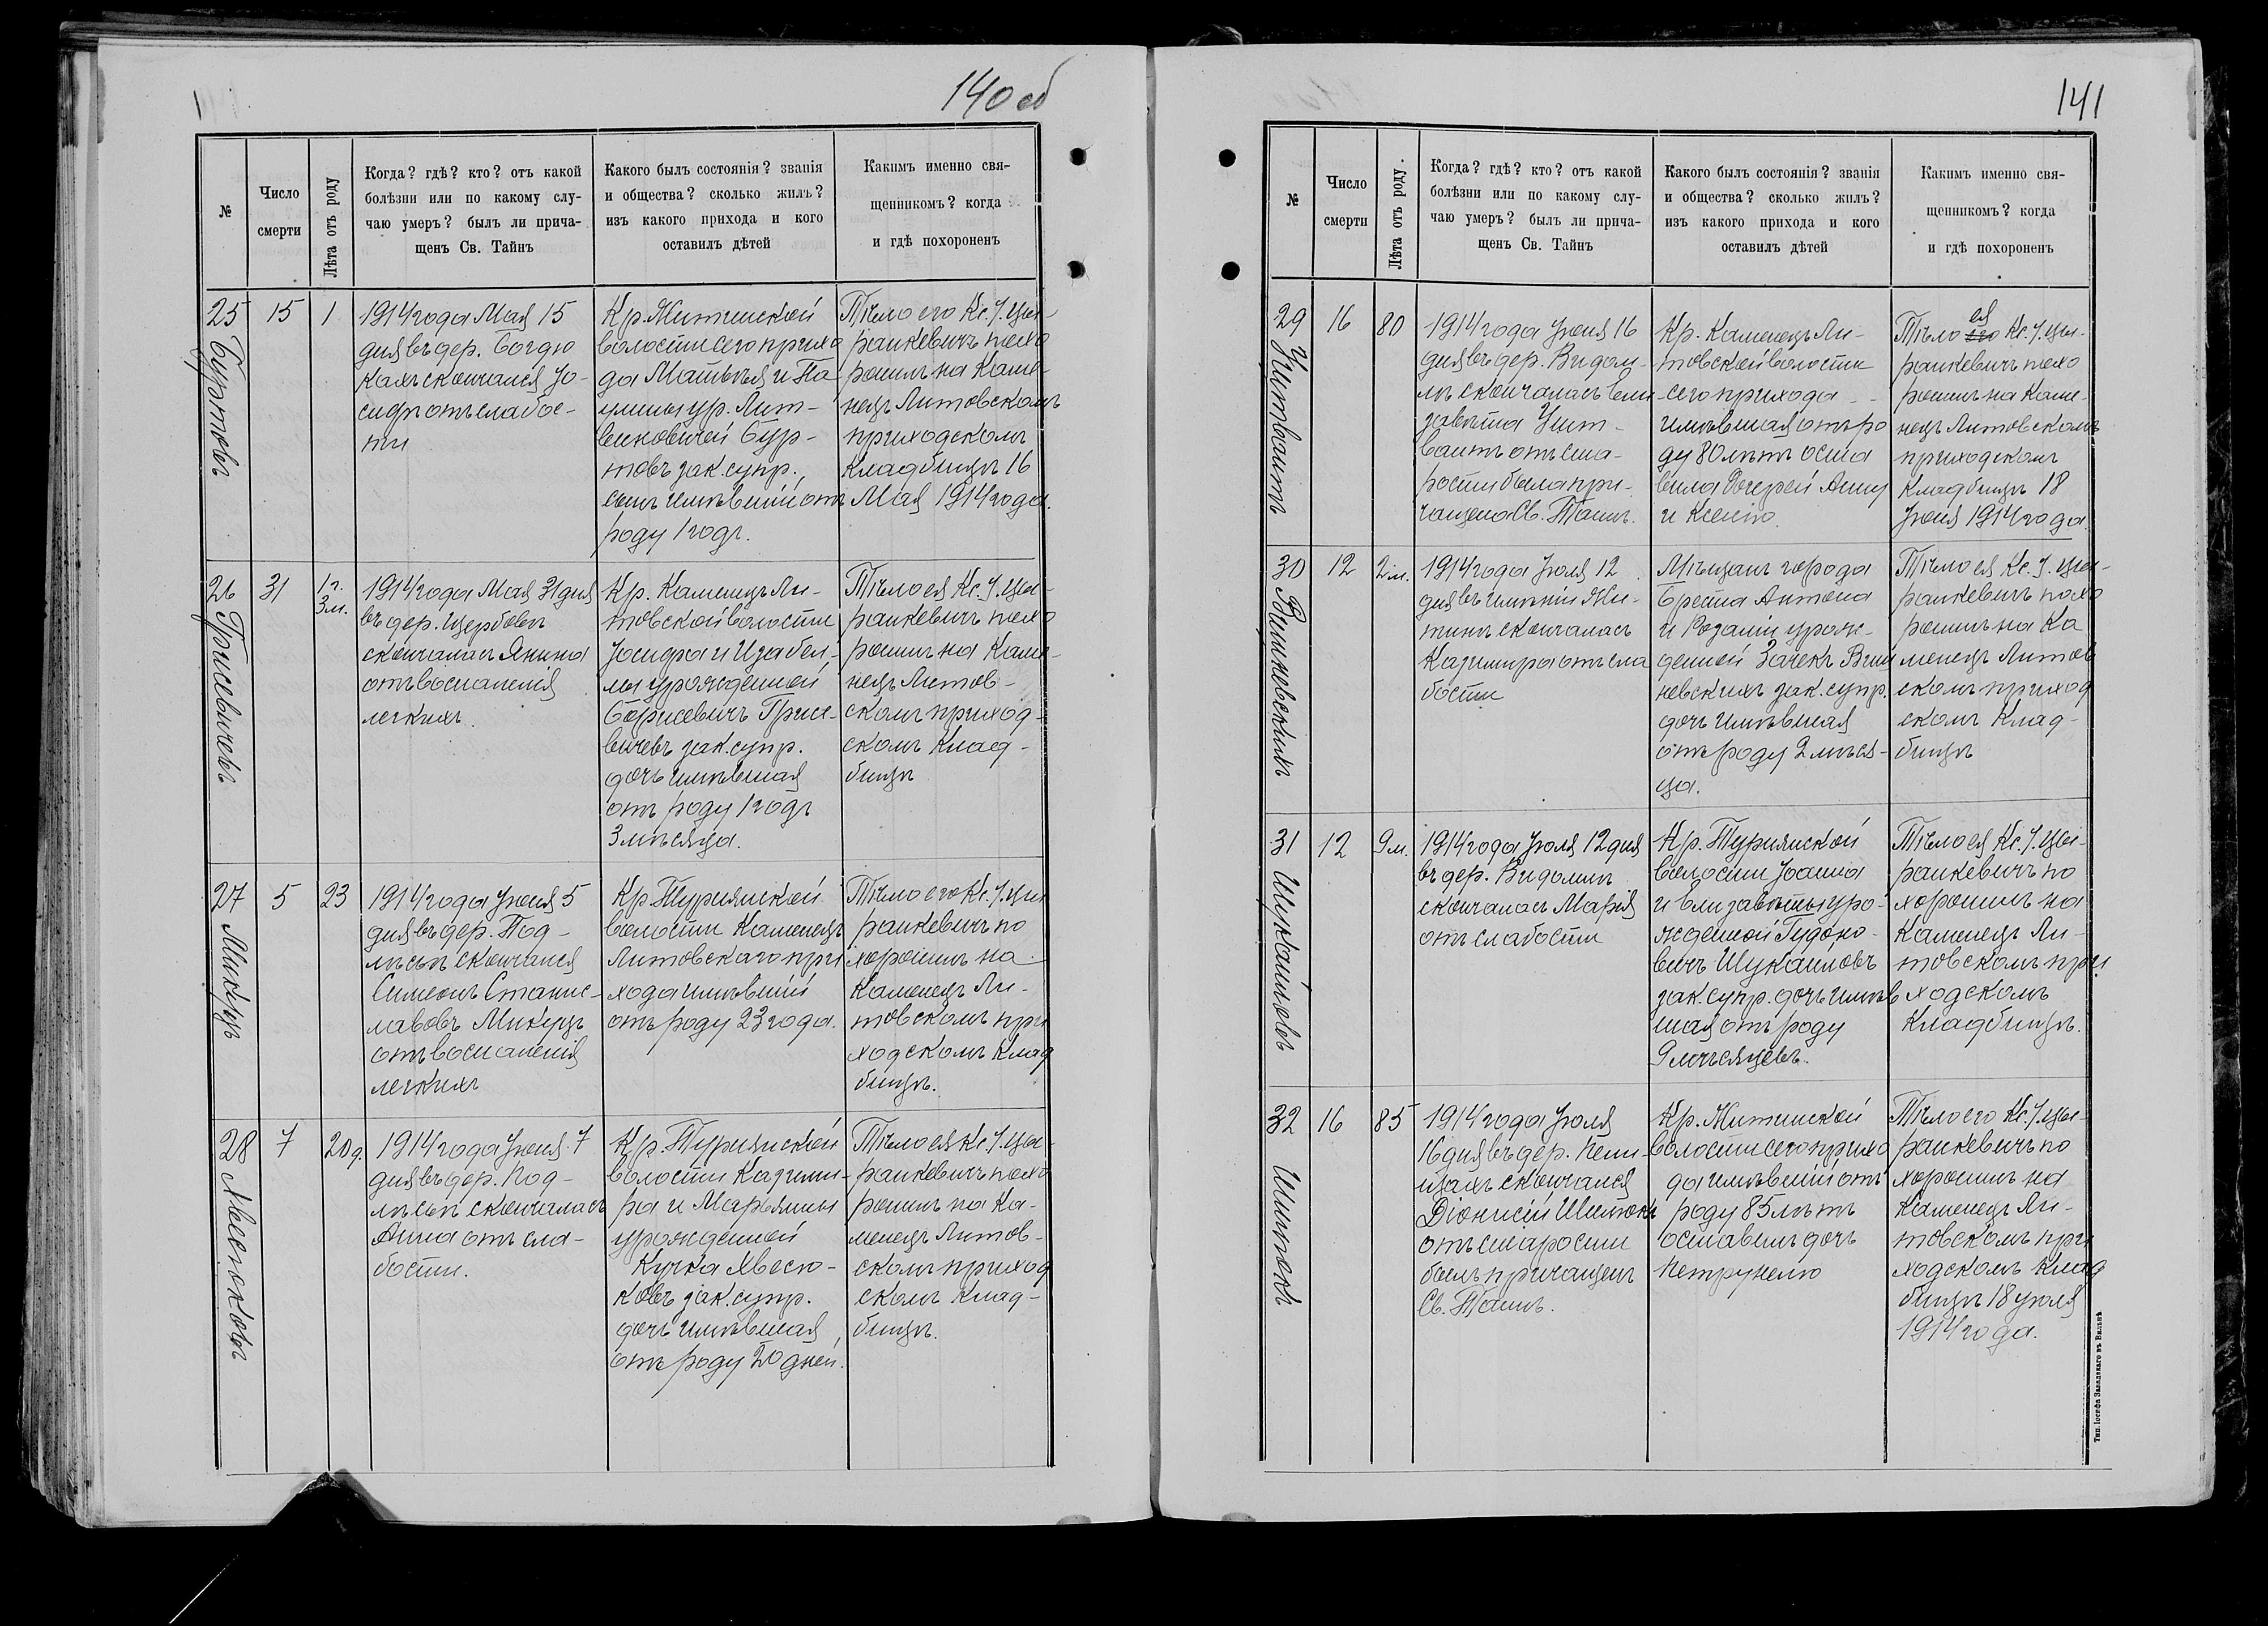 140 об
№
Число
смерти
Лѣта отъ роду
Когда? гдѣ? кто? отъ какой
болѣзни или по какому слу-
чаю умеръ? былъ ли прича-
щенъ Св. Тайнъ
Какого былъ состоянія? званія
и общества? сколько жилъ?
изъ какого прихода и кого
оставилъ дѣтей
Какимъ именно свя-
щенникомъ? когда
и гдѣ похороненъ
25
Буртовъ
15
1
1914 года Мая 15
дня въ дер. Богдю
кахъ скончался Іо-
сифъ отъ слабос-
ти
Кр. Житинской
волости сего прихо
да Матвѣя и Па
улины ур. Лит-
виновичей Бур-
товъ зак. супр.,
сынъ имѣвшій отъ
роду 1 годъ.
Тѣло его Кс. І. Цы-
ранкевичъ похо
ронилъ на Каме-
нецъ Литовскомъ
приходскомъ
кладбищѣ 16
Мая 1914 года.
26
Грисевичевъ
31
1 г.
3 м.
1914 года Мая 31 дня
въ дер. Щербовѣ
скончалась Янина
отъ воспаленія
легкихъ.
Кр. Каменецъ Ли-
товской волости
Іосифа и Изабел-
лы урожденной
Борисевичъ Грисе-
вичевъ зак. супр.
дочь имѣвшая
отъ роду 1 годъ
3 мѣсяца.
Тѣло ея Кс. І. Цы-
ранкевичъ похо
ронилъ на Каме-
нецъ Литов-
скомъ приход-
скомъ клад-
бищѣ
27
Микуцъ
5
23
1914 года Іюня 5
дня въ дер. Под-
лѣсьѣ скончался
Симеонъ Станис-
лавовъ Микуцъ
отъ воспаленія
легкихъ
Кр. Турнянской
волости Каменецъ
Литовскаго при
хода имѣвшій
отъ роду 23 года.
Тѣло его Кс. І. Цы
ранкевичъ по
хоронилъ на
Каменецъ Ли-
товскомъ при
ходскомъ клад
бищѣ.
28
Хвесюковъ
7
20 д.
1914 года Іюня 7
дня въ дер. Под-
лѣсьѣ скончалась
Анна отъ сла-
бости.
Кр. Турнянской
волости Казими-
ра и Марьянны
урожденной
Кучка Хвесю-
ковъ зак. супр.
дочь имѣвшая
отъ роду 20 дней.
Тѣло ея Кс. І. Цы-
ранкевичъ похо
ронилъ на Ка-
менецъ Литов-
скомъ приход
скомъ клад-
бищѣ.
141
№
Число
смерти
Лѣта отъ роду.
Когда? гдѣ? кто? отъ какой
болѣзни или по какому слу-
чаю умеръ? былъ ли прича-
щенъ Св. Тайнъ
Какого былъ состоянія? званія
и общества? сколько жилъ?
изъ какого прихода и кого
оставилъ дѣтей
Какимъ именно свя-
щенникомъ? когда
и гдѣ похороненъ
29
16
80
1914 года Іюня 16
дня въ дер. Видом-
лѣ скончалась Ели-
завѣта
отъ ста-
рости была при-
чащена Св. Таинъ.
Кр. Каменецъ Ли-
товской волости
сего прихода
имѣвшая отъ ро
ду 80 лѣтъ оста
вила дочерей Анну
и Ксенію.
ея
Тѣло его Кс. І. Цы-
ранкевичъ похо
ронилъ на Каме-
нецъ Литовскомъ
приходскомъ
кладбищѣ 18
Іюня 1914 года.
30
Вишневскихъ
12
2 м.
1914 года Іюля 12
дня въ имѣніи Жи-
тинѣ скончалась
Казимира отъ сла
бости
Мѣщанъ города
Бреста Антона
и Розаліи урож-
денной Зачекъ Виш
невскихъ зак. супр.
дочь имѣвшая
отъ роду 2 мѣся-
ца.
Тѣло ея Кс. І. Цы-
ранкевичъ похо
ронилъ на Ка
менецъ Литов
скомъ приход
скомъ клад-
бищѣ
31
Шукайловъ
12
9 м.
1914 года Іюля 12 дня
въ дер. Видомлѣ
скончалась Марія
отъ слабости
Кр. Турнянской
волости Іоанна
и Елизавѣты уро-
жденной Гудоно-
вичъ Шукаиловъ
зак. супр. дочь имѣв
шая отъ роду
9 мѣсяцевъ.
Тѣло ея Кс. І. Цы-
ранкевичъ по
хоронилъ на
Каменецъ Ли-
товскомъ при
ходскомъ
кладбищѣ.
32
Шитюкъ
16
85
1914 года Іюля
16 дня въ дер. Пели-
щахъ скончался
Діонисій Шитюкъ
отъ старости
былъ причащенъ
Св. Таинъ.
Кр. Житинской
волости сего прихо
да имѣвшій отъ
роду 85 лѣтъ
оставилъ дочь
Петрунелю
Тѣло его Кс. І. Цы-
ранкевичъ по
хоронилъ на
Каменецъ Ли-
товскомъ при
ходскомъ клад
бищѣ 18 Іюля
1914 года.
Тип. Іосифа Завадзкаго въ Вильнѣ